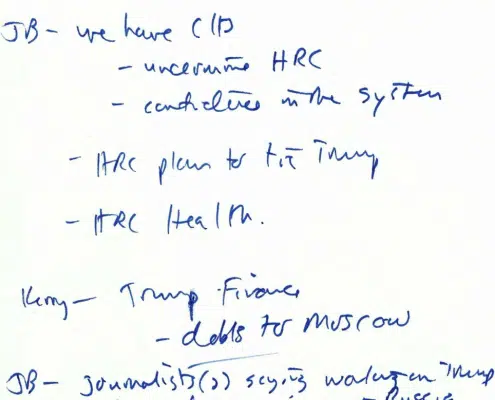 JB - we have
- undermine HRC
- candidates in the system
- HRC plan to tie Trump
- HRC Health.
Kerry - Trump Finance
- debts to Moscow
JB - journalists(s) saying on Trump
- Russia